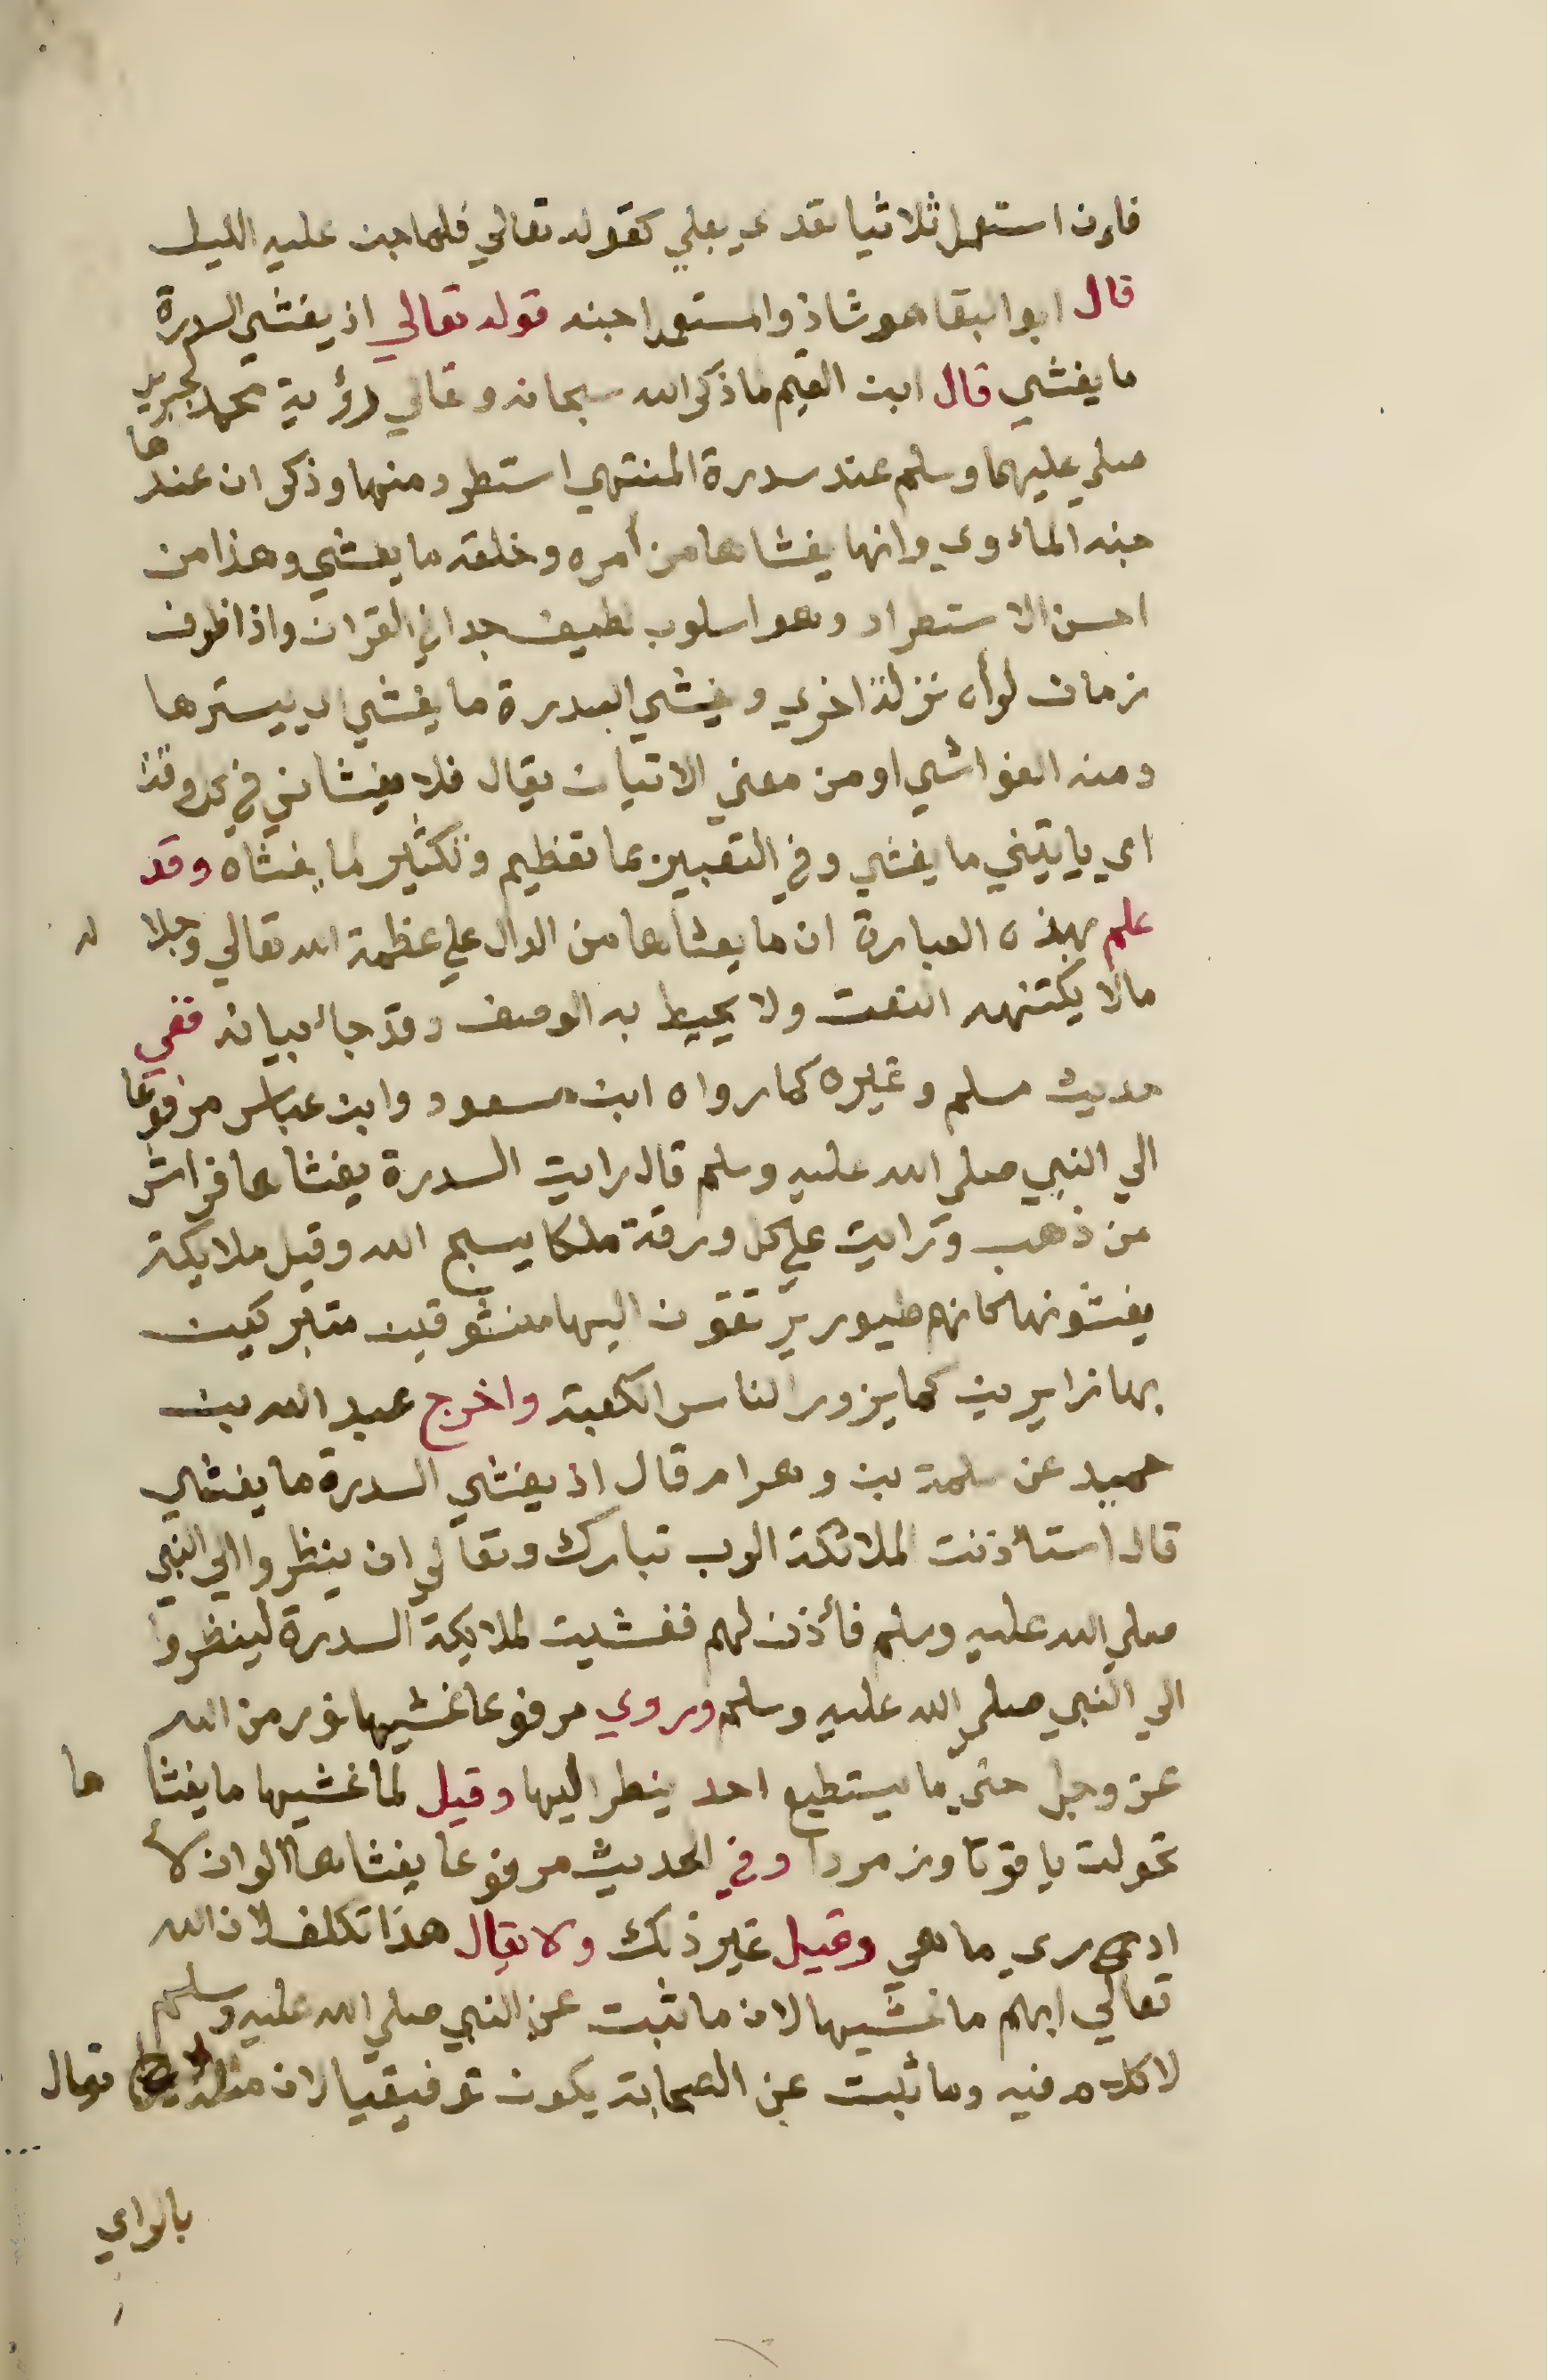 فإن استعمل ثلاثيا تعدي بعلي كقوله تعالي فلما جن عليه الليل
قال ابو البقا هو شاذ والمستعمل اجنه قوله تعالي اذ يغشي السدرة
ما يغشي قال ابن القيم ما ذكر الله سبحانه وتعالي رؤية محمد لجبريل
صلي عليهما وسلم عند سدرة المنتهي استطرد منها وذكر ان عندها
جنه المأوي وانها يغشاها من أمره وخلقه ما يغشي وهذا من
احسن الاستطراد وهو اسلوب لطيف جدا في القران واذا ظرف
زمان لرأه نزلة اخري ويغشي السدرة ما يغشي اي يسترها
ومنه الغواشي او من معني الاتيان يقال فلا يغشاني في كل وقت
اي ياتيني ما يغشي وفي التعبير بما تعظيم وتكثير لما يغشاه وقد
علم بهذه العبارة ان ما يغشاها من الدال علي عظمة الله تعالي وجلاله
مالا يكتنهه النعت ولا يحيط به الوصف وقد جاء بيانه ففي
حديث مسلم وغيره كما رواه ابن مسعود وابن عباس مرفوعا
الي النبي صلي الله عليه وسلم قال رايت السدرة يغشاها فراش
من ذهب ورايت علي كل ورقة ملكا يسبح الله وقيل ملايكة
يغشونها كانهم طيور يرتقون اليها متشوقين متبركين
بها زايرين كما يزور الناس الكعبة واخرج عبد الله بن
حميد عن سلمة بن وهرام قال اذ يغشي السدرة ما يغشي
قال استأذنت الملائكة الرب تبارك وتعالي ان ينظروا الي النبي
صلي الله عليه وسلم فأذن لهم فغشيت الملايكة السدرة لينظروا
الي النبي صلي الله عليه وسلم وروي مرفوعا غشيها نور من الله
عز وجل حتي ما يستطيع احد ينظر اليها وقيل لما غشيها ما يغشاها
تحولت ياقوتا وزمردا وفي الحديث مرفوعا يغشاها الوان لا
ادري ما هي وقيل غير ذلك ولا يقال هذا تكلف لان الله
تعالي ابهم ما غشيها لان ما ثبت عن النبي صلي الله عليه وسلم
لا كلام فيه وما ثبت عن الصحابة يكون توفيقيا لان مثله يقال
بالراي